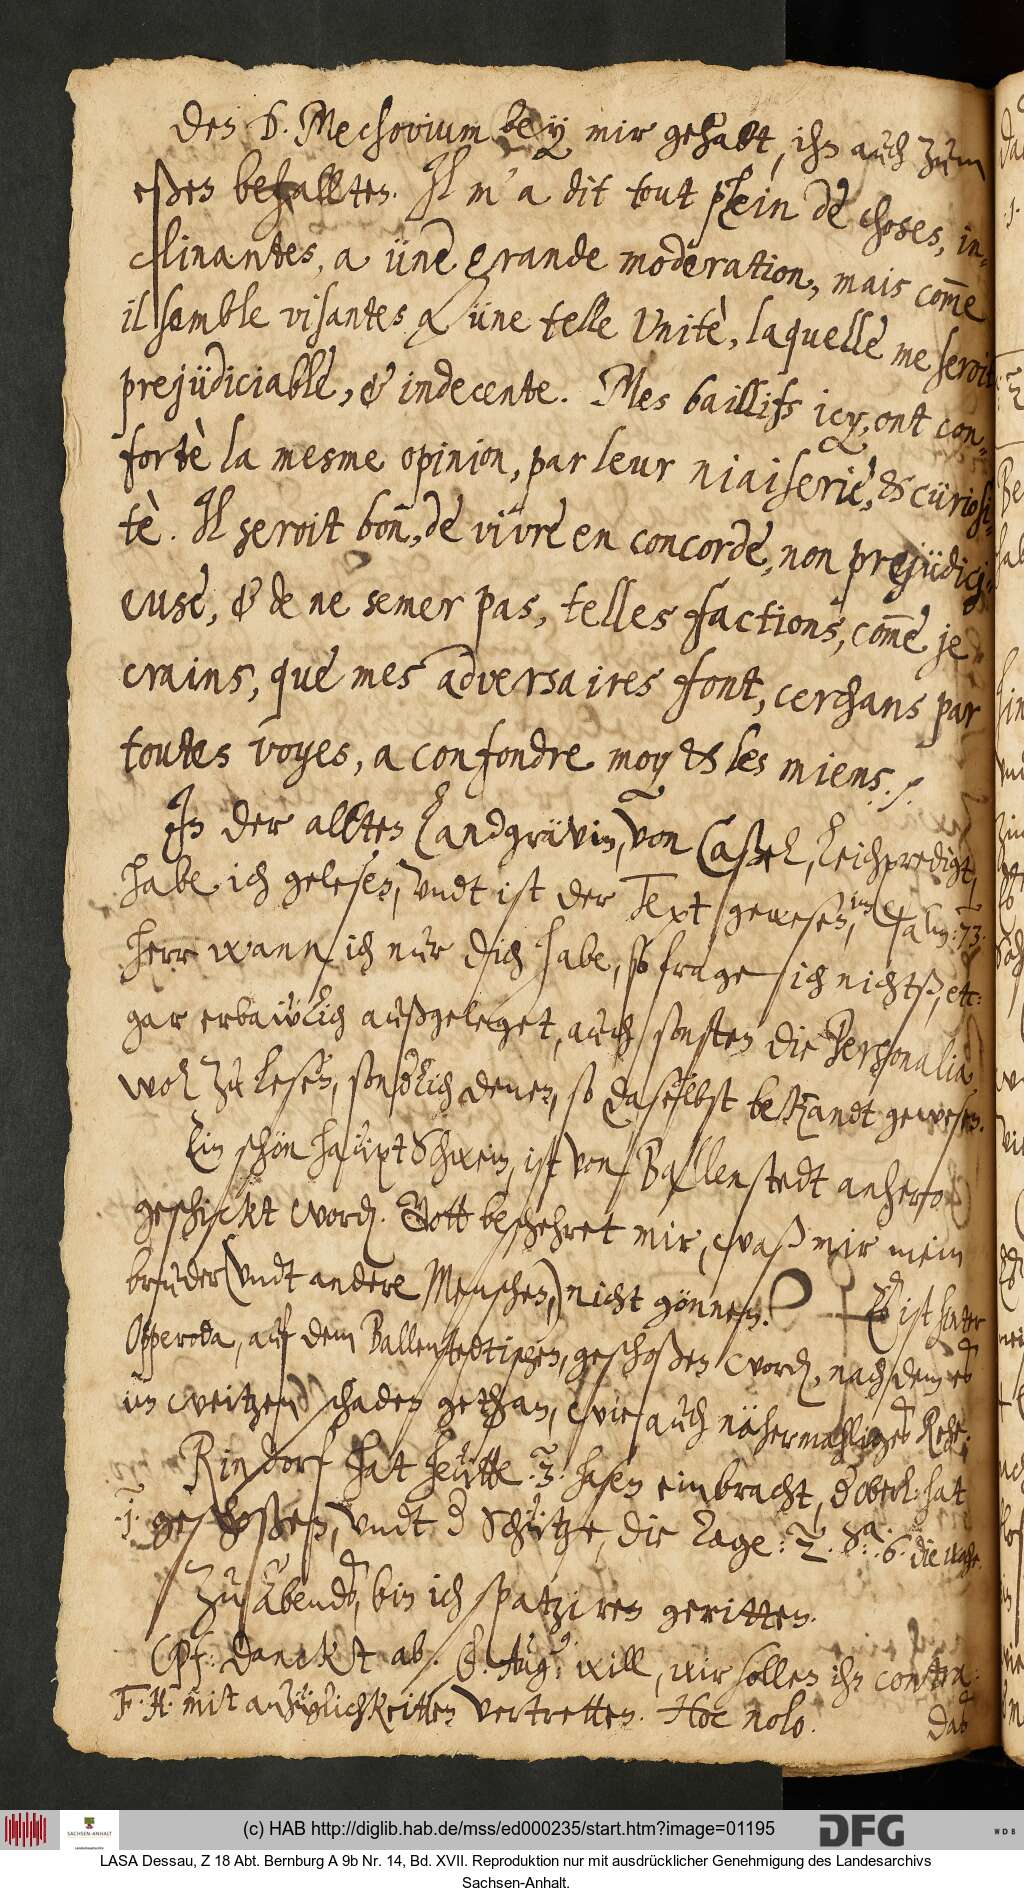 Den D. Mechovium bey mir gehabt, ihn auch zum
eßen behallten. Il m'a dit tout plein de choses, in-
clinantes, a üne grande moderation, mais com̄e
il semble visantes a üne telle Unitè, laquelle me seroit
prejüdiciable, & indecente. Mes baillifs icy, ont con-
fortè la mesme opinion, par leur niaiserie, & cüriosi-
tè. Il seroit bon, de vivre en concorde, non prejüdici-
euse, & de ne semer pas, telles factions, com̄e je
crains, que mes adversaires font, cerchans par
toutes voyes, a confondre moy & les miens. /.
In der allten Landgrävin, von Caßel, Leichpredigt,
habe ich gelesen, undt ist der Text gewesen, im Psalm: 73.
Herr wann ich nur dich habe, so frage ich nichtß, etc:
gar erbaẅlich außgeleget, auch sonsten die Personalia
wol zu lesen, sonderlich denen, so daselbst bekandt gewesen.
Ein schön haüpt Schwein, ist von Ballenstedt anhero
geschickt word. Gott beschehret mir, waß mir mein
bruder (undt andere Menschen,) nicht gönnen. Es ist hinter
Opperoda, auf dem Ballenstedtischen, geschoßen word, nach dem es
im weitzen schaden gethan, wie auch
Rindorf hat heütte .3. hasen einbracht, d oberl. hat
.1. geschoßen, undt d Schütze, die Tage : 2. 8. 6. die woche.
Zu Abends, bin ich spatziren geritten.
danckt ab. Aug: will, wir sollen ihn
F. H. mit anzüglichkeitten vertretten. Hoc nolo.
daß
(c) HAB http://diglib.hab.de/mss/ed000235/start.htm?image=01195
SACHSEN-ANHALT
DFG
WDB
LASA Dessau, Z 18 Abt. Bernburg A 9b Nr. 14, Bd. XVII. Reproduktion nur mit ausdrücklicher Genehmigung des Landesarchivs
Sachsen-Anhalt.